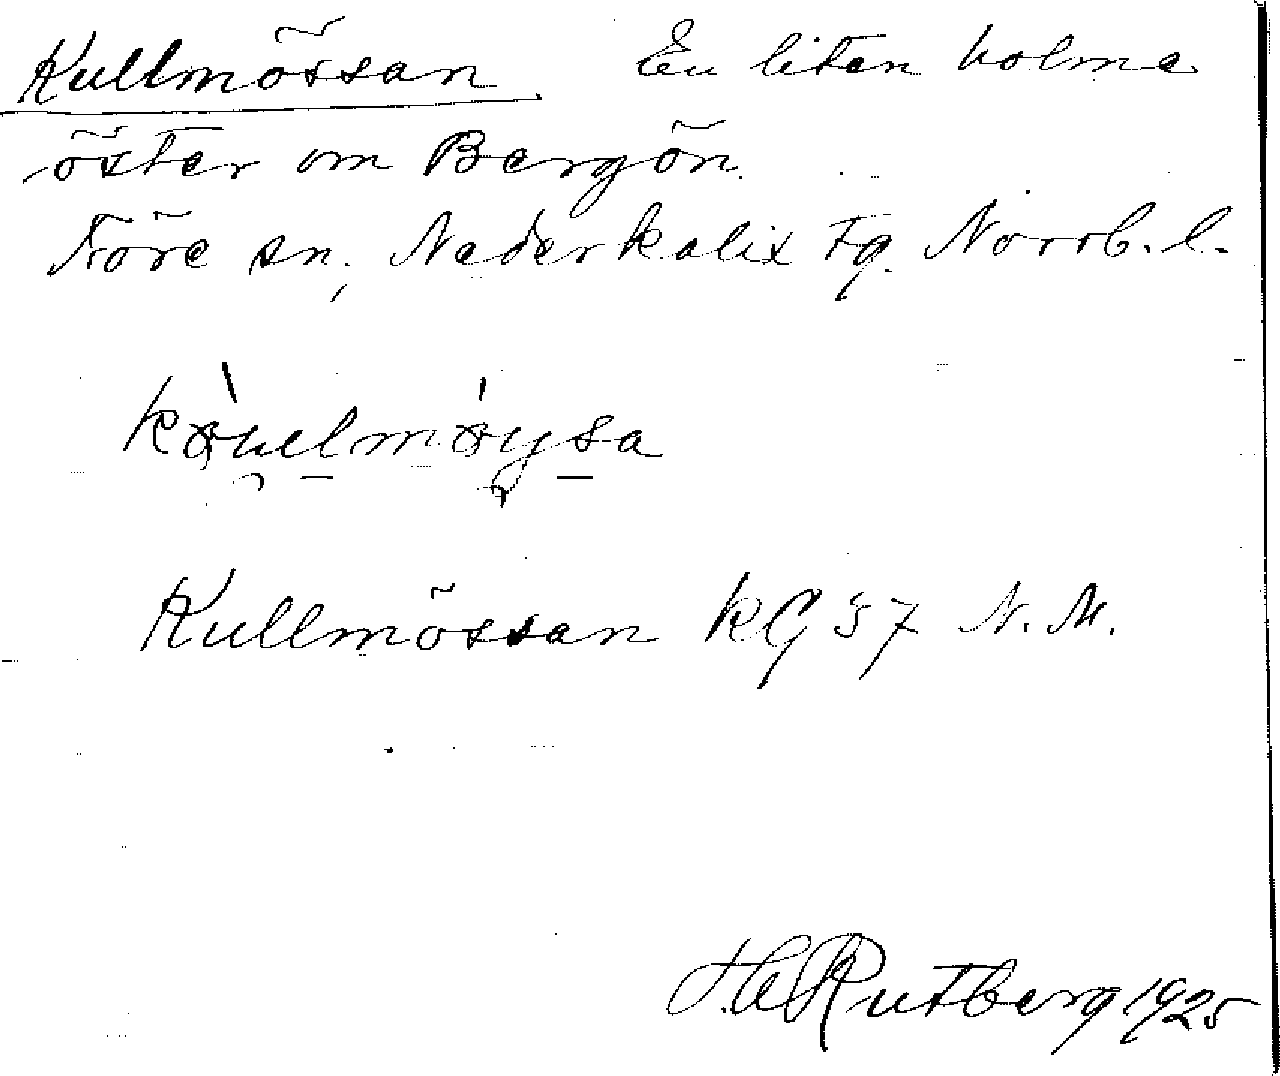 Kullmössan. En liten holme
öster om Bergön.
Töre sn, Nederkalix Tg. Norrb. l.
Kullmössan KG 57 N. M.
Rutberg 1925